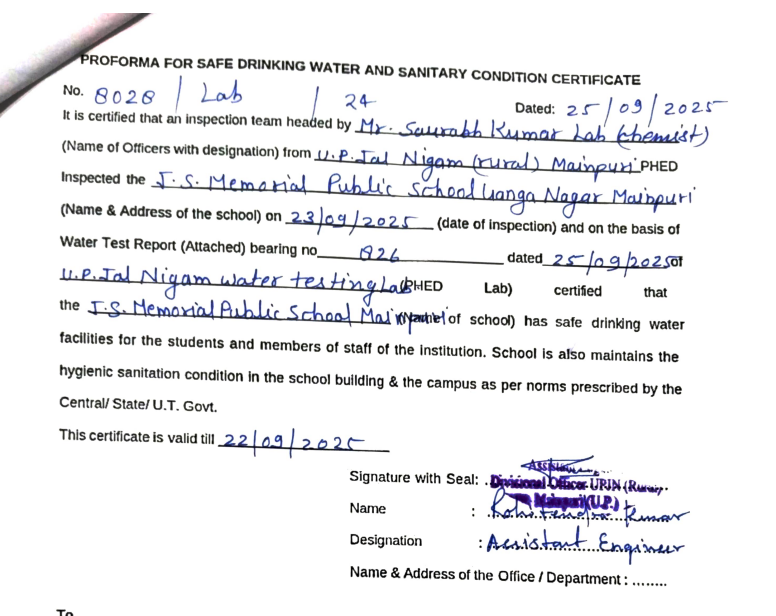 PROFORMA FOR SAFE DRINKING WATER AND SANITARY CONDITION CERTIFICATE
No. 8028 / Lab / 24 Dated: 25/09/2025
It is certified that an inspection team headed by Mr. Saurabh Kumar Lab (chemist)
(Name of Officers with designation) from U.P. Jal Nigam (rural) Mainpuri PHED
Inspected the J. S. Memorial Public School Nagar Mainpuri
(Name & Address of the school) on 23/09/2025 (date of inspection) and on the basis of
Water Test Report (Attached) bearing no 826 dated 25/09/2025 of
U.P. Jal Nigam water testing Lab (PHED Lab) certified that
the J.S. Memorial Public School Mainpuri (Name of school) has safe drinking water
facilities for the students and members of staff of the institution. School is also maintains the
hygienic sanitation condition in the school building & the campus as per norms prescribed by the
Central/ State/ U.T. Govt.
This certificate is valid till 22/09/2025
Signature with Seal: Divisional Officer (Rural)
Mainpuri (U.P.)
Name : Kumar
Designation : Assistant Engineer
Name & Address of the Office / Department : ........
To